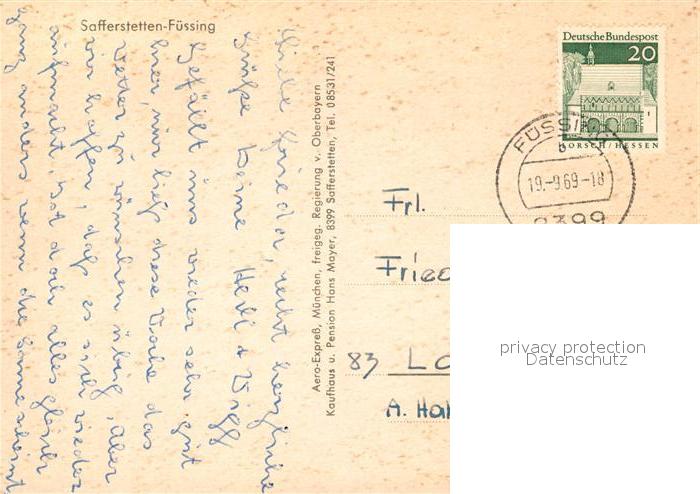 Safferstetten-Füssing
Liebe Frieda, recht herzliche
Grüße Deine Hedl +
Gefällt uns wieder sehr gut
hier, nur ließ diese Woche das
Wetter zu wünschen übrig, aber
wir hoffen, daß es sich wieder
aufmacht, ist doch alles gleich
ganz anders wenn die Sonne scheint
Aero-Expreß, München, freigeg. Regierung v. Oberbayern
Kaufhaus u. Pension Hans Mayer, 8399 Safferstetten, Tel. 08531/241
Deutsche Bundespost
20
LORSCH/HESSEN
FÜSSING
b
19.-9.69-18
8399
Frl.
Fried
83 La
A. Ha
privacy protection
Datenschutz